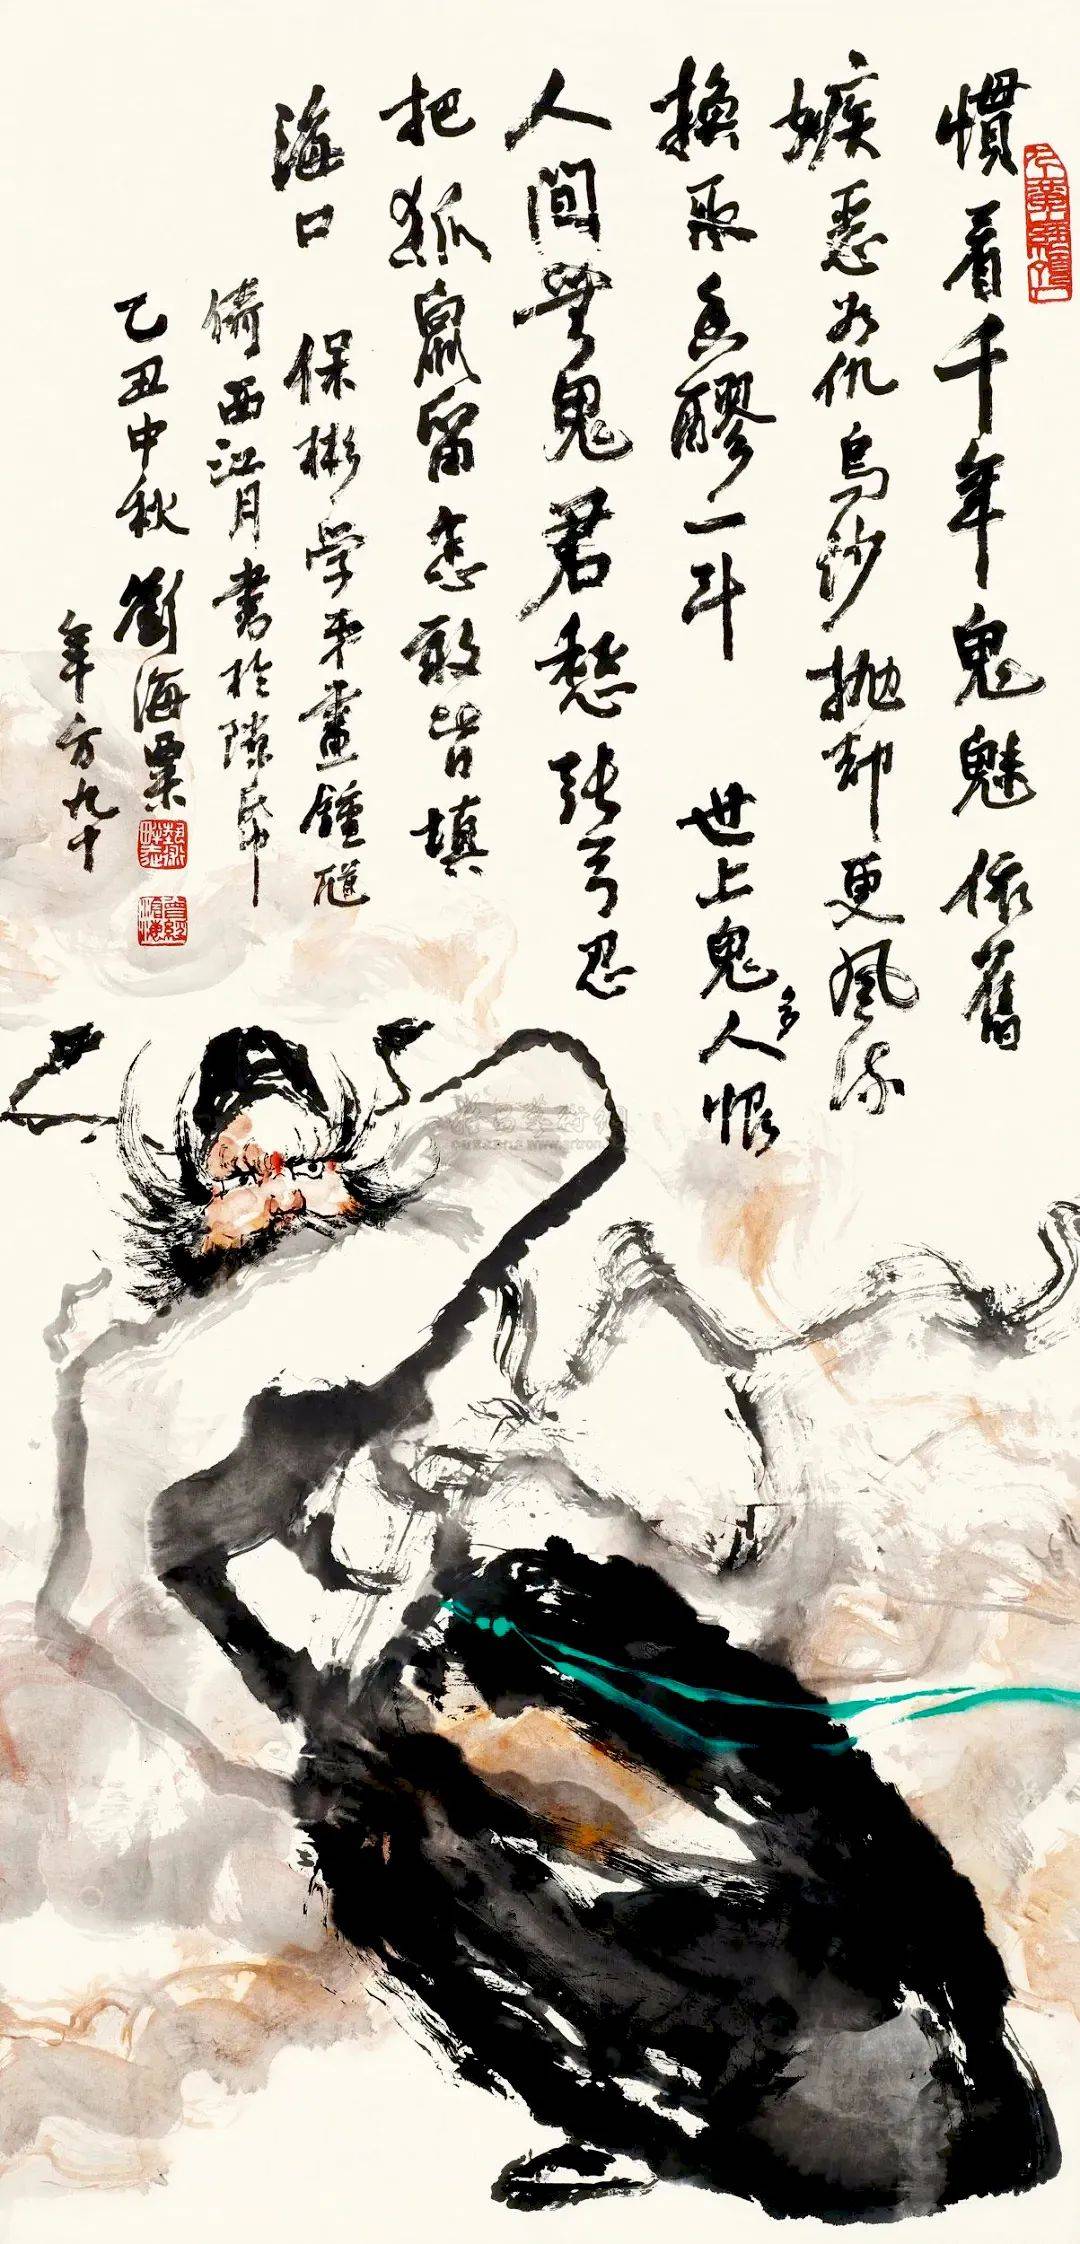 慣看千年鬼魅依舊
嫉惡如仇烏紗拋却更風流
換取香醪一斗 世上鬼多人恨
人間無鬼君愁 忍
把狐鼠留 敢皆填
海口 保彬学弟畫鍾馗
倚西江月書於隙帋
乙丑中秋 劉海粟
年方九十
曾經滄海